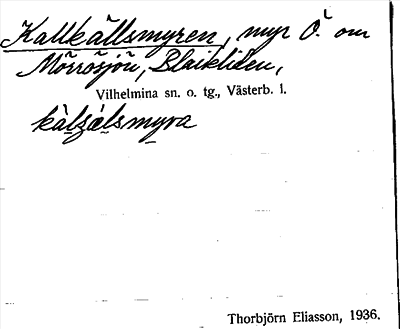 Kallkällsmyren, myr Ö. om
Mörrösjön, Blaikliden,
Vilhelmina sn. o. tg., Västerb. l.
kàlsɛ́lsmyra
Thorbjörn Eliasson, 1936.